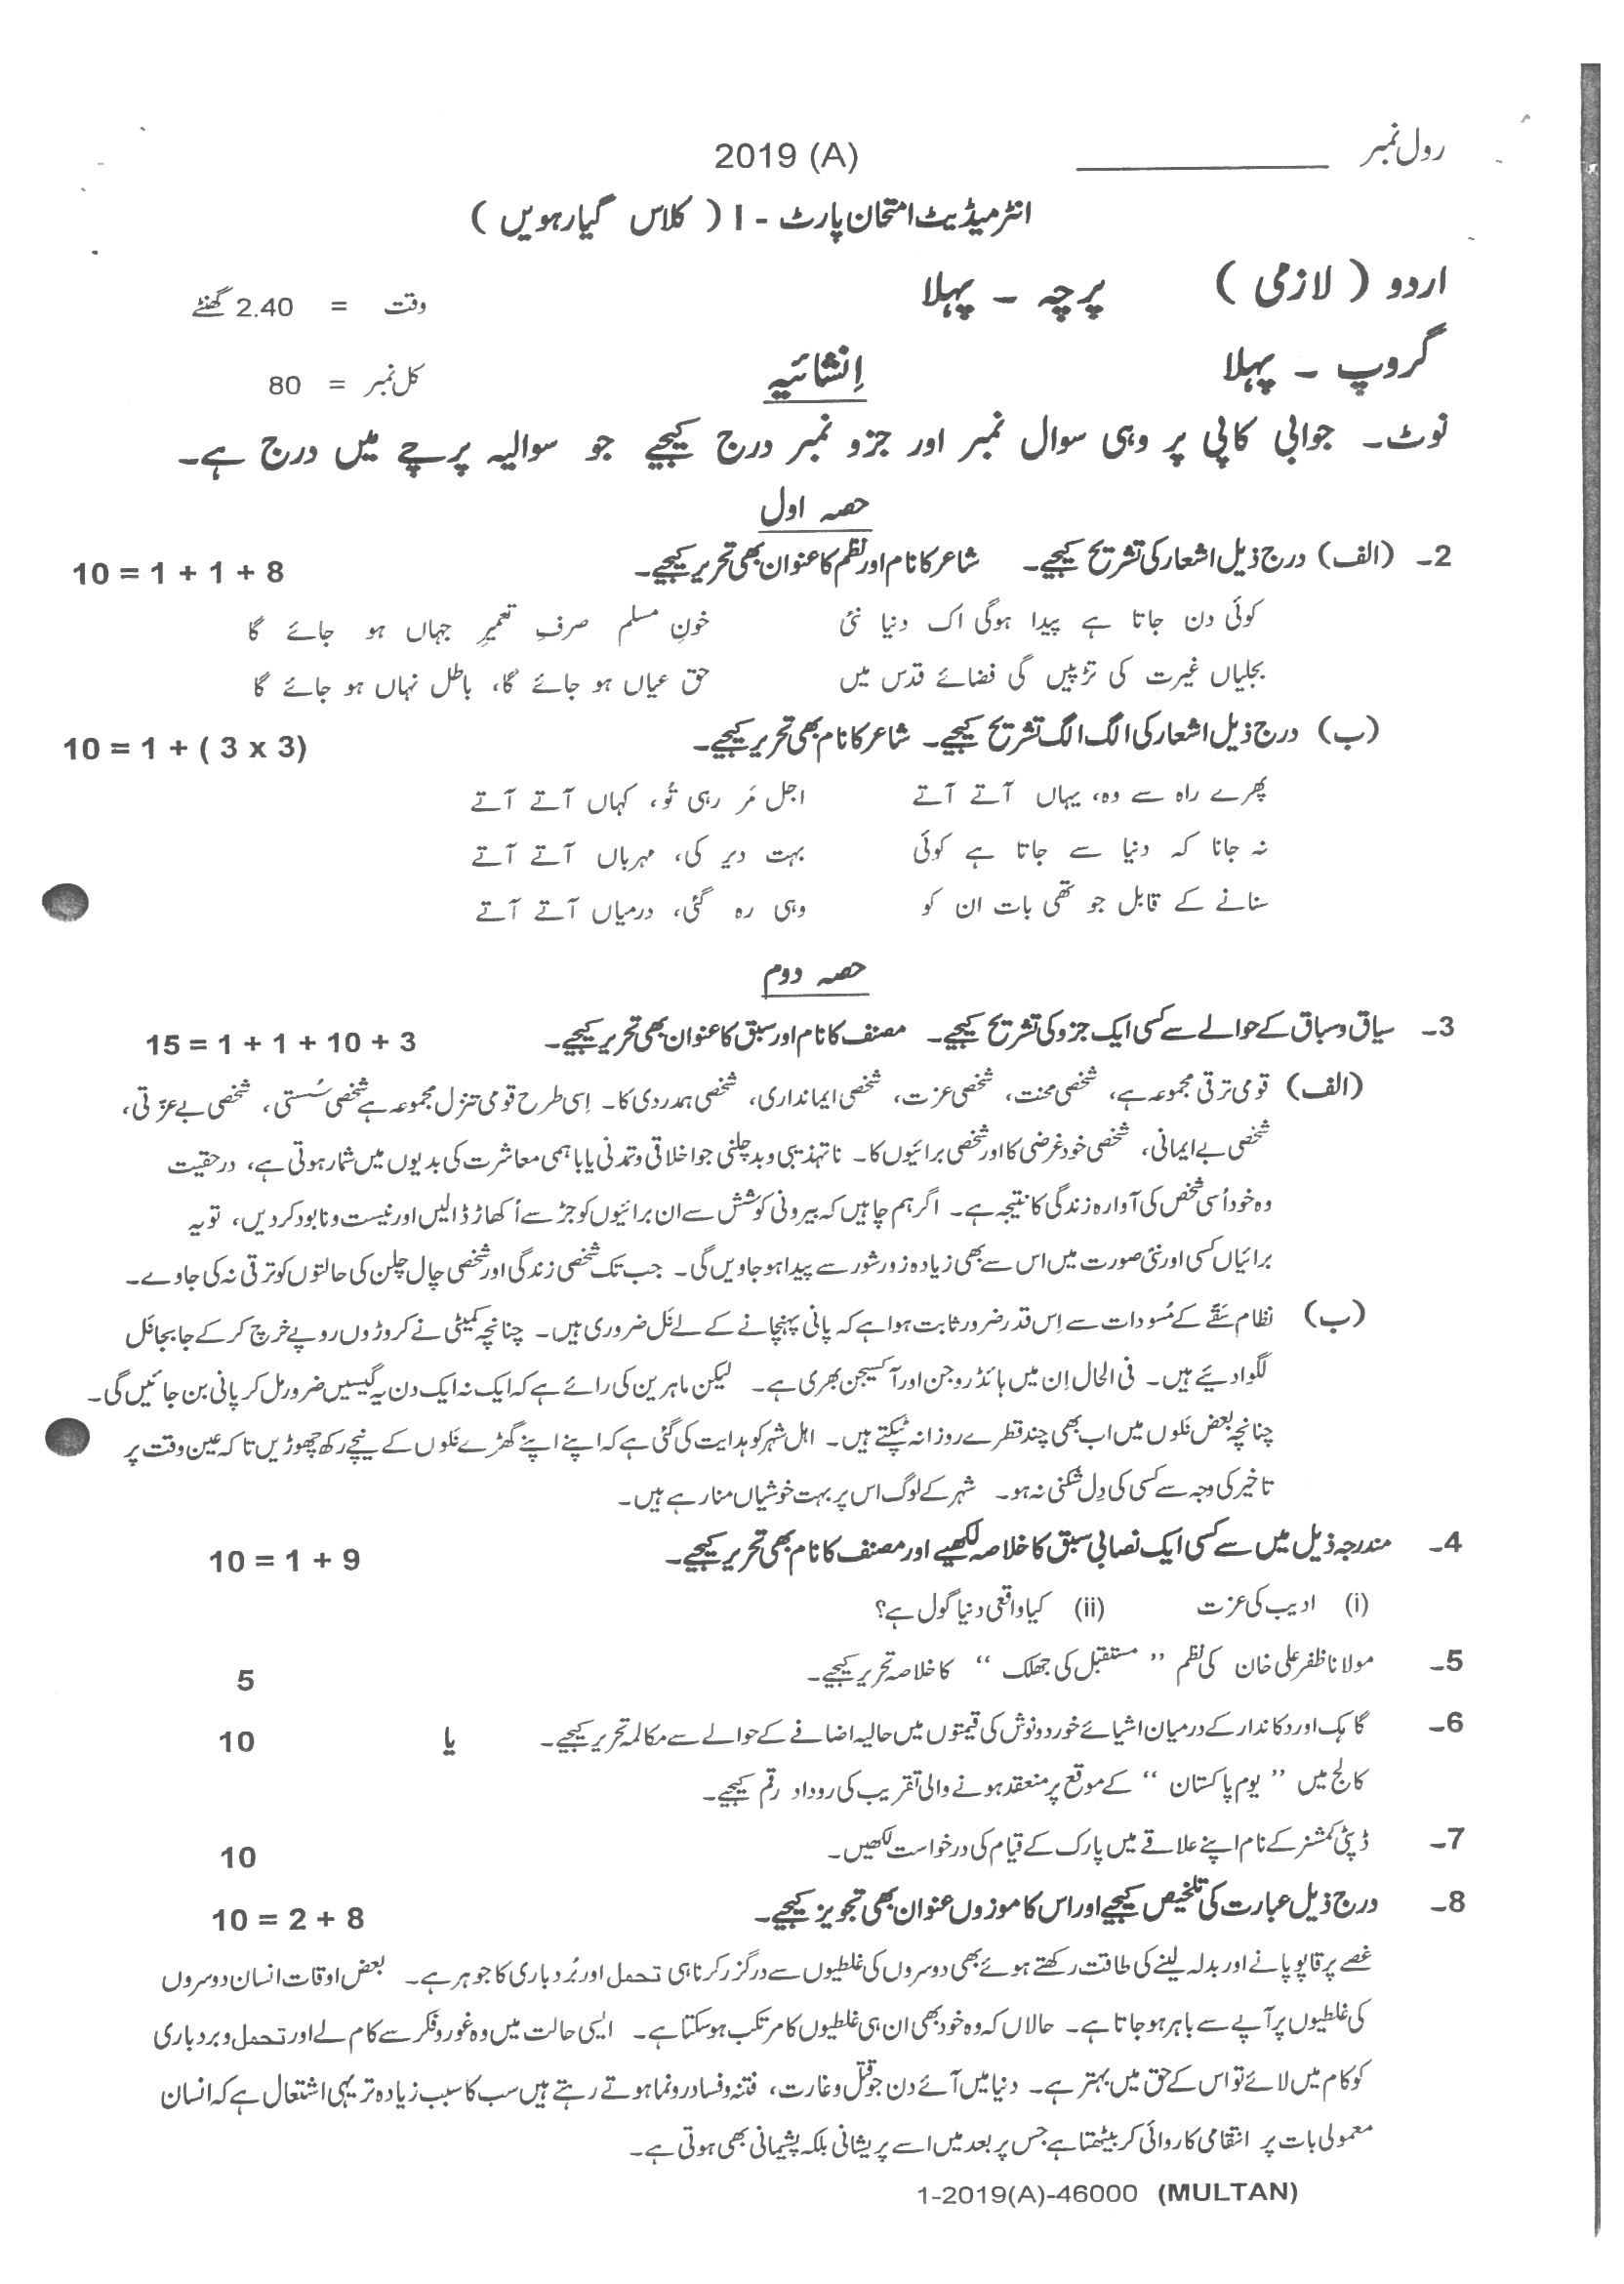 رول نمبر ____________ 2019 (A)
انٹرمیڈیٹ امتحان پارٹ - I ( کلاس گیارہویں )
اردو ( لازمی ) پرچہ ۔ پہلا وقت = 2.40 گھنٹے
گروپ ۔ پہلا اِنشائیہ کل نمبر = 80
نوٹ۔ جوابی کاپی پر وہی سوال نمبر اور جزو نمبر درج کیجیے جو سوالیہ پرچے میں درج ہے۔
حصہ اول
2۔ (الف) درج ذیل اشعار کی تشریح کیجیے۔ شاعر کا نام اور نظم کا عنوان بھی تحریر کیجیے۔ 10 = 1 + 1 + 8
کوئی دن جاتا ہے پیدا ہوگی اک دنیا نئی خونِ مسلم صرفِ تعمیرِ جہاں ہو جائے گا
بجلیاں غیرت کی تڑپیں گی فضائے قدس میں حق عیاں ہو جائے گا، باطل نہاں ہو جائے گا
(ب) درج ذیل اشعار کی الگ الگ تشریح کیجیے۔ شاعر کا نام بھی تحریر کیجیے۔ 10 = 1 + ( 3 x 3)
پھرے راہ سے وہ، یہاں آتے آتے اجل مَر رہی تُو، کہاں آتے آتے
نہ جانا کہ دنیا سے جاتا ہے کوئی بہت دیر کی، مہرباں آتے آتے
سنانے کے قابل جو تھی بات ان کو وہی رہ گئی، درمیاں آتے آتے
حصہ دوم
3۔ سیاق و سباق کے حوالے سے کسی ایک جزو کی تشریح کیجیے۔ مصنف کا نام اور سبق کا عنوان بھی تحریر کیجیے۔ 15 = 1 + 1 + 10 + 3
(الف) قومی ترقی مجموعہ ہے، شخصی محنت، شخصی عزت، شخصی ایمانداری، شخصی ہمدردی کا۔ اِسی طرح قومی تنزل مجموعہ ہے شخصی سُستی، شخصی بے عزّتی،
شخصی بے ایمانی، شخصی خود غرضی کا اور شخصی برائیوں کا۔ ناتہذیبی و بدچلنی جو اخلاقی و تمدنی یا باہمی معاشرت کی بدیوں میں شمار ہوتی ہے، درحقیقت
وہ خود اُسی شخص کی آوارہ زندگی کا نتیجہ ہے۔ اگر ہم چاہیں کہ بیرونی کوشش سے ان برائیوں کو جڑ سے اُکھاڑ ڈالیں اور نیست و نابود کردیں، تو یہ
برائیاں کسی اور نئی صورت میں اس سے بھی زیادہ زور شور سے پیدا ہو جاویں گی۔ جب تک شخصی زندگی اور شخصی چال چلن کی حالتوں کو ترقی نہ کی جاوے۔
(ب) نظام سَقّے کے مُسودات سے اِس قدر ضرور ثابت ہوا ہے کہ پانی پہنچانے کے لئے نَل ضروری ہیں۔ چنانچہ کمیٹی نے کروڑوں روپے خرچ کر کے جابجا نَل
لگوا دیئے ہیں۔ فی الحال اِن میں ہائڈروجن اور آکسیجن بھری ہے۔ لیکن ماہرین کی رائے ہے کہ ایک نہ ایک دن یہ گیسیں ضرور مل کر پانی بن جائیں گی۔
چنانچہ بعض نَلوں میں اب بھی چند قطرے روزانہ ٹپکتے ہیں۔ اہل شہر کو ہدایت کی گئی ہے کہ اپنے اپنے گھڑے نَلوں کے نیچے رکھ چھوڑیں تا کہ عین وقت پر
تاخیر کی وجہ سے کسی کی دِل شکنی نہ ہو۔ شہر کے لوگ اس پر بہت خوشیاں منا رہے ہیں۔
4۔ مندرجہ ذیل میں سے کسی ایک نصابی سبق کا خلاصہ لکھیے اور مصنف کا نام بھی تحریر کیجیے۔ 10 = 1 + 9
(i) ادیب کی عزت (ii) کیا واقعی دنیا گول ہے؟
5۔ مولانا ظفر علی خان کی نظم ’’ مستقبل کی جھلک ‘‘ کا خلاصہ تحریر کیجیے۔ 5
6۔ گاہک اور دکاندار کے درمیان اشیائے خوردونوش کی قیمتوں میں حالیہ اضافے کے حوالے سے مکالمہ تحریر کیجیے۔ یا 10
کالج میں ’’ یوم پاکستان ‘‘ کے موقع پر منعقد ہونے والی تقریب کی روداد رقم کیجیے۔
7۔ ڈپٹی کمشنر کے نام اپنے علاقے میں پارک کے قیام کی درخواست لکھیں۔ 10
8۔ درج ذیل عبارت کی تلخیص کیجیے اور اس کا موزوں عنوان بھی تجویز کیجیے۔ 10 = 2 + 8
غصے پر قابو پانے اور بدلہ لینے کی طاقت رکھتے ہوئے بھی دوسروں کی غلطیوں سے درگزر کرنا ہی تحمل اور بُردباری کا جوہر ہے۔ بعض اوقات انسان دوسروں
کی غلطیوں پر آپے سے باہر ہو جاتا ہے۔ حالاں کہ وہ خود بھی ان ہی غلطیوں کا مرتکب ہو سکتا ہے۔ ایسی حالت میں وہ غور و فکر سے کام لے اور تحمل و بردباری
کو کام میں لائے تو اس کے حق میں بہتر ہے۔ دنیا میں آئے دن جو قتل و غارت، فتنہ و فساد رونما ہوتے رہتے ہیں سب کا سبب زیادہ تر یہی اشتعال ہے کہ انسان
معمولی بات پر انتقامی کاروائی کر بیٹھتا ہے جس پر بعد میں اسے پریشانی بلکہ پشیمانی بھی ہوتی ہے۔
1-2019(A)-46000 (MULTAN)